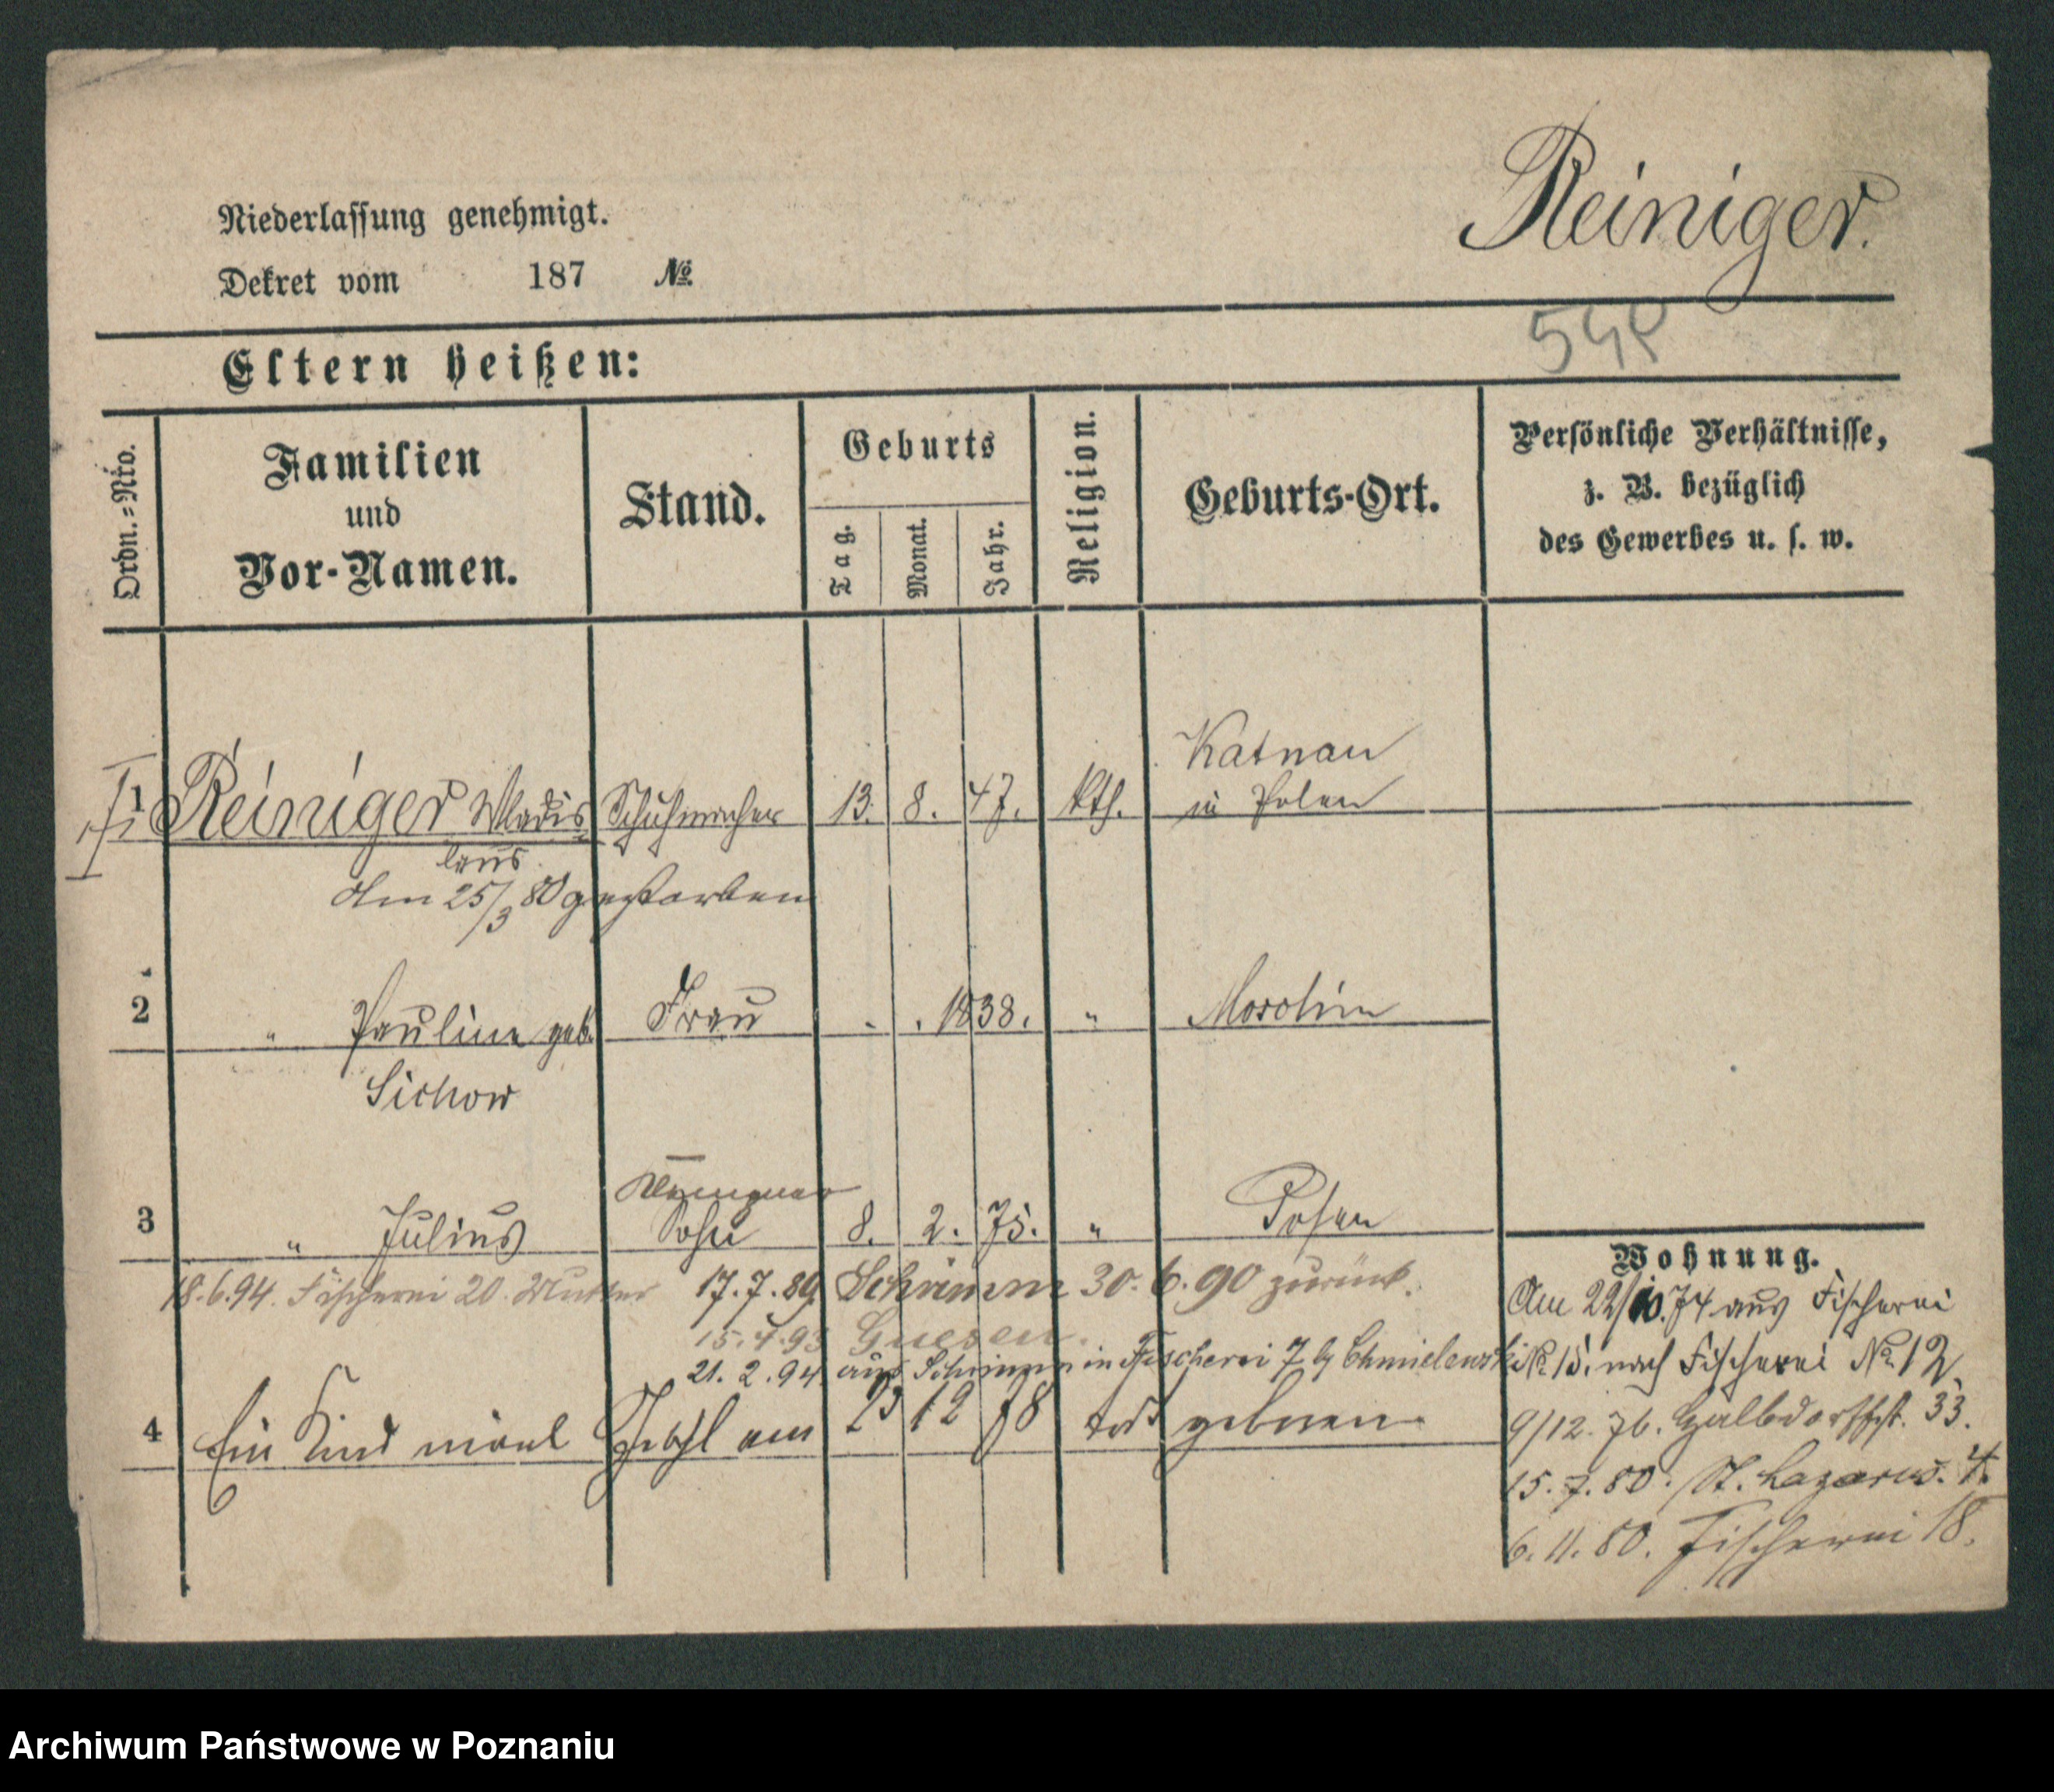 Reiniger.
Niederlassung genehmigt.
Dekret vom 187 №
Eltern heißen:
Ordn.=Nro.
Familien
und
Vor-Namen.
Stand.
Geburts
Tag.
Monat.
Jahr.
Religion.
Geburts-Ort.
Persönliche Verhältnisse,
z. B. bezüglich
des Gewerbes u. s. w.
Katnau
1 Reiniger Wladis Schuhmacher 13. 8. 47. kth. in Polen
laus
Am 25/3 80 gestorben
2 " Pauline geb. Frau . . 1838. "
Sichow
3 " Julius Sohn 8. 2. 75. " Posen
18.6.94. Fischerei 20. Mutter 17.7.89 Schrimm 30.6.90 zurück.
15.4.93 Gnesen.
21.2.94 aus Schrimm in Fischerei 7 b/ Chmielewski
4 Ein Kind männl. Geschl am 23 12 78 todt geboren
Wohnung.
Am 22/10.74 aus Fischerei
№ 15. nach Fischerei № 12
9/12.76. Halbdorfstr. 33.
15.7.80. St. Lazarus. 4.
6.11.80. Fischerei 18.
Archiwum Państwowe w Poznaniu